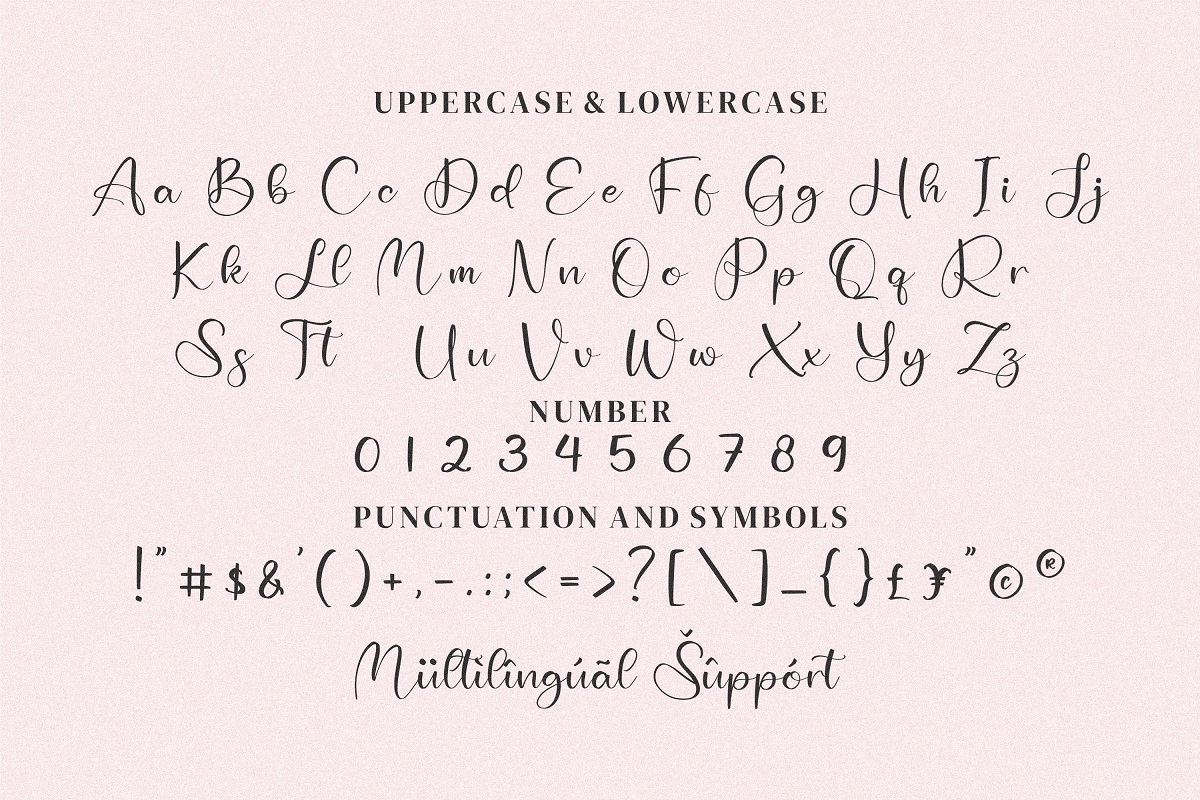 UPPERCASE & LOWERCASE
Aa Bb Cc Dd Ee Ff Gg Hh Ii Jj
Kk Ll Mm Nn Oo Pp Qq Rr
Ss Tt Uu Vv Ww Xx Yy Zz
NUMBER
0 1 2 3 4 5 6 7 8 9
PUNCTUATION AND SYMBOLS
!"#$&'()+,-.:;<=>?[\]_{}£¥"©®
Mültìlîngúãl Šûppórt